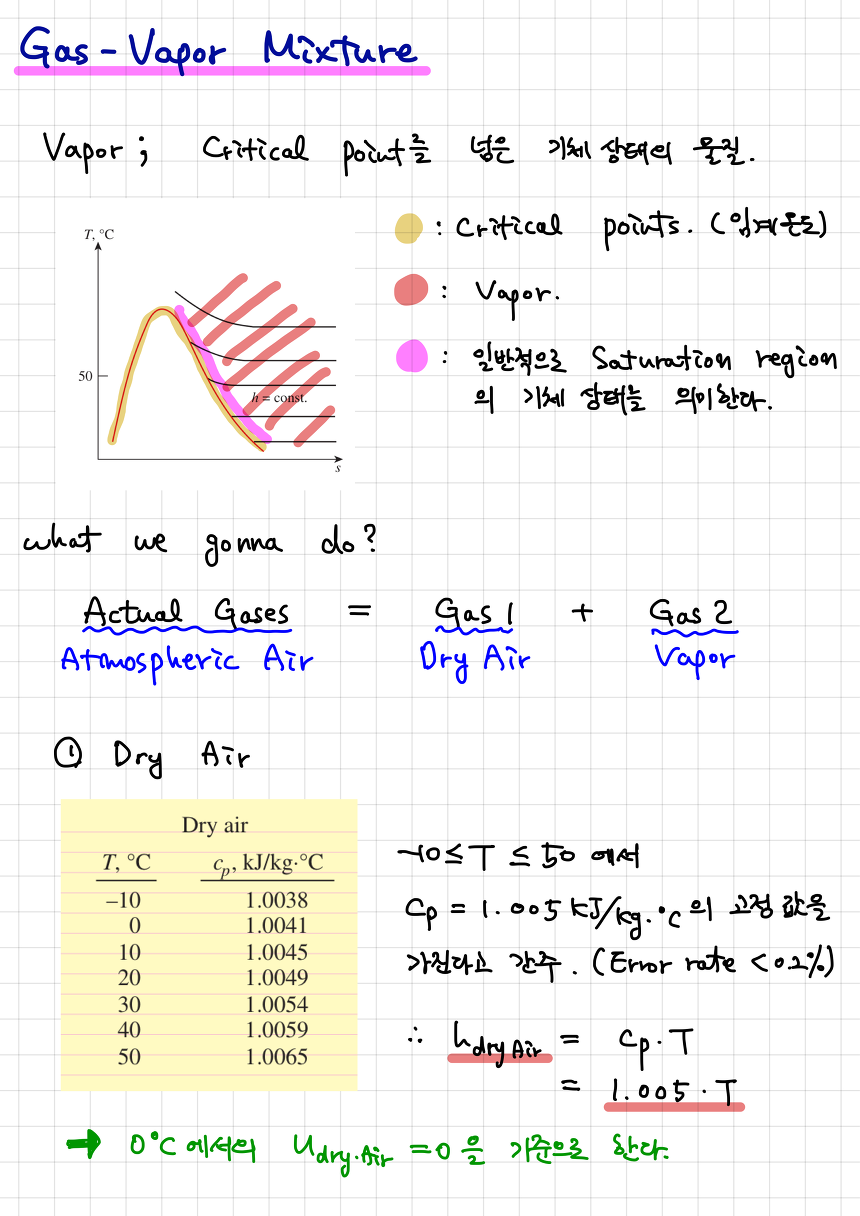 Gas-Vapor Mixture
Vapor ; Critical point를 넘은 기체 상태의 물질.
T, °C
50
h = const.
s
: Critical points. (임계온도)
: Vapor.
: 일반적으로 Saturation region
의 기체 상태를 의미한다.
what we gonna do?
Actual Gases = Gas 1 + Gas 2
Atmospheric Air Dry Air Vapor
① Dry Air
Dry air
T, °C cp, kJ/kg·°C
–10 1.0038
0 1.0041
10 1.0045
20 1.0049
30 1.0054
40 1.0059
50 1.0065
-10≤T≤50 에서
Cp = 1.005 kJ/kg.°C의 고정 값을
가진다고 간주. (Error rate < 0.2%)
∴ hdry Air = Cp·T
= 1.005·T
➡ 0°C에서의 Udry.Air = 0을 기준으로 한다.